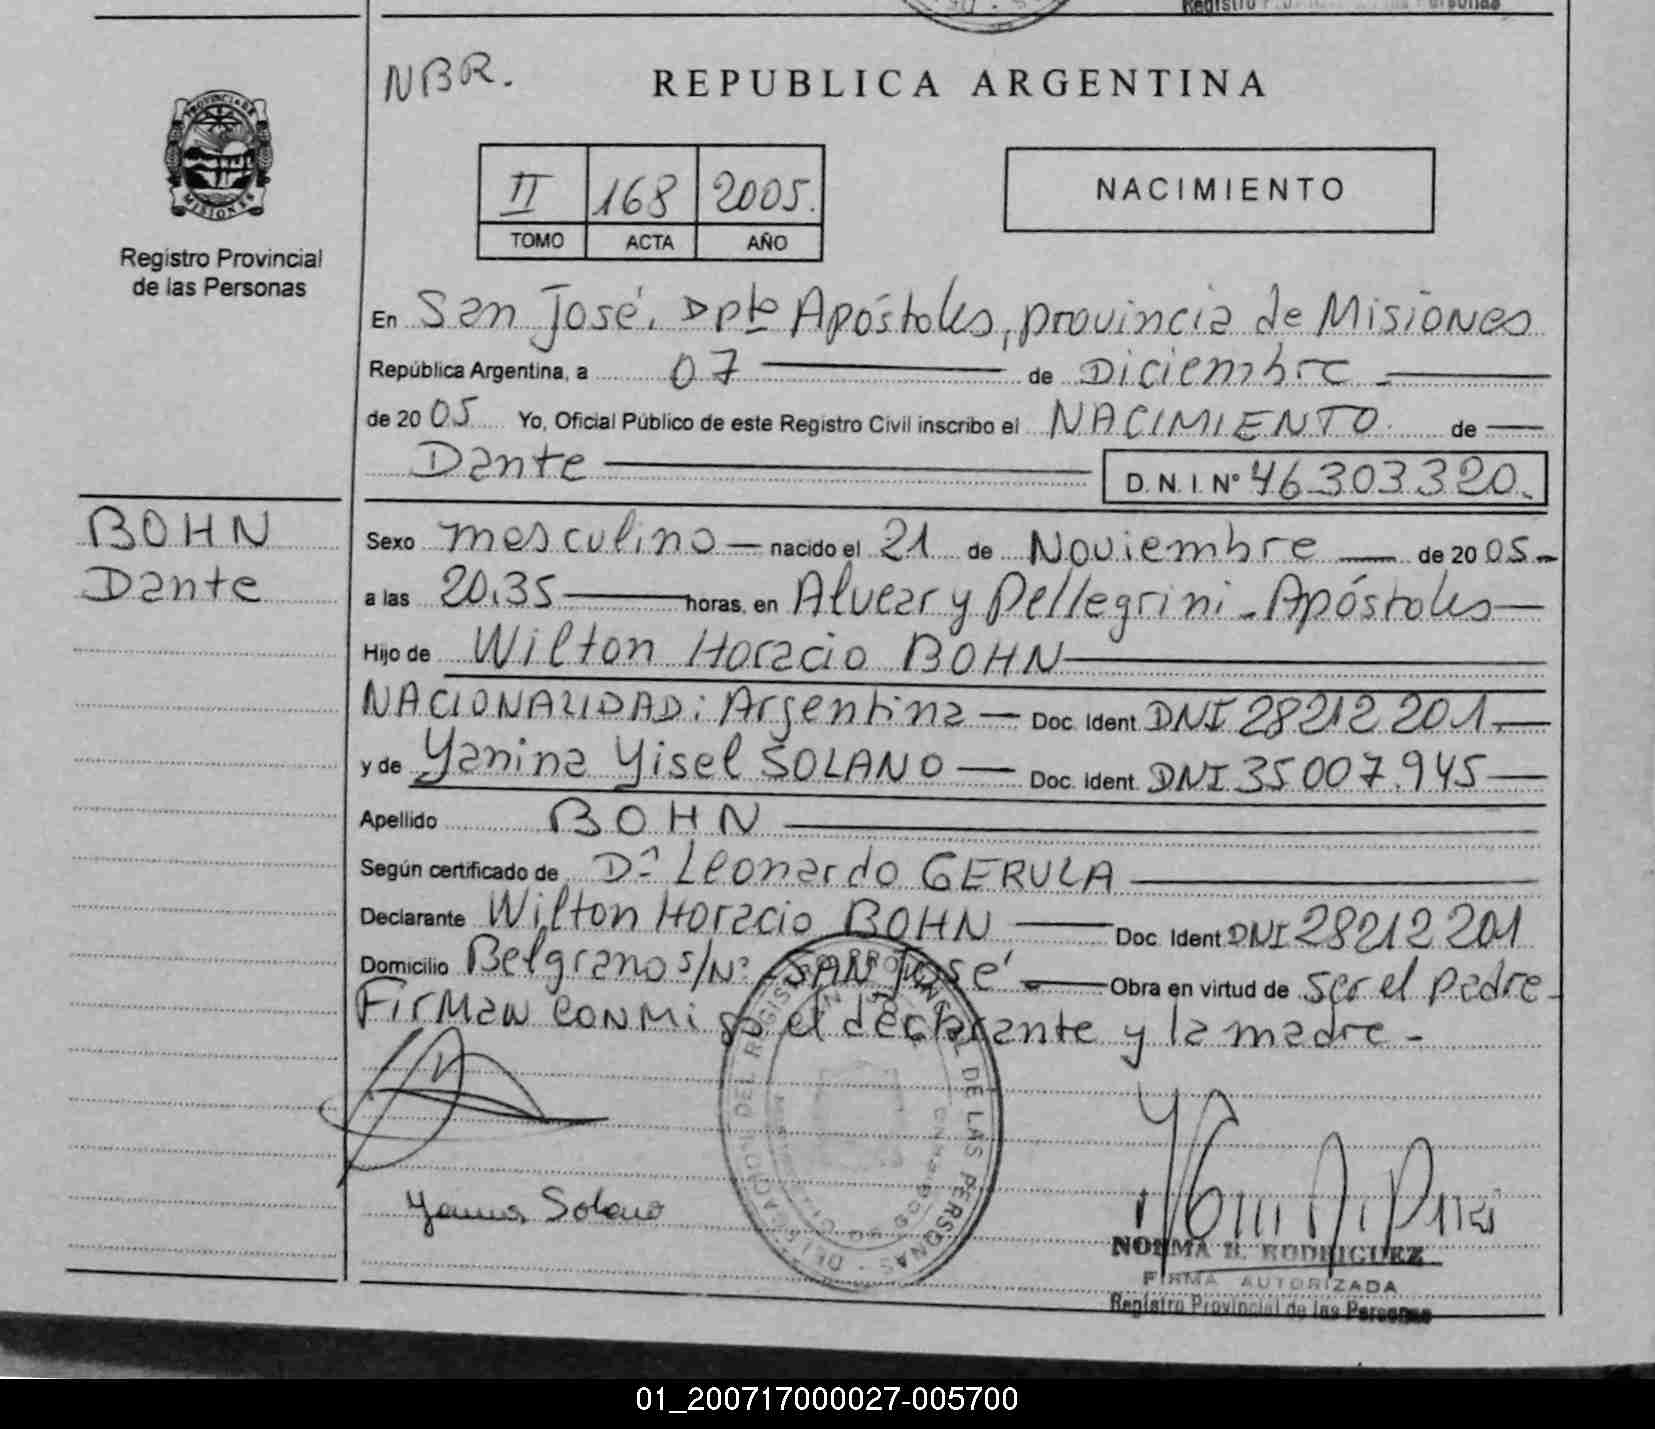 NBR.
REPUBLICA ARGENTINA
PROVINCIA DE
MISIONES
Registro Provincial
de las Personas
II 168 2005.
TOMO ACTA AÑO
NACIMIENTO
En San José, Dpto Apóstoles, provincia de Misiones
República Argentina, a 07 de Diciembre
de 2005 Yo, Oficial Público de este Registro Civil inscribo el NACIMIENTO de
Dante D.N.I. Nº 46.303.320.
BOHN
Dante
Sexo masculino nacido el 21 de Noviembre de 2005
a las 20,35 horas, en Alvear y Pellegrini - Apóstoles
Hijo de Wilton Horacio BOHN
NACIONALIDAD: Argentina Doc. Ident. DNI 28212201
y de Yanina Yisel SOLANO Doc. Ident. DNI 35007.945
Apellido BOHN
Según certificado de Dº Leonardo GERULA
Declarante Wilton Horacio BOHN Doc. Ident. DNI 28212201
Domicilio Belgrano S/Nº SAN José Obra en virtud de ser el padre
Firman conmigo el declarante y la madre -
Solano
NORMA B. RODRIGUEZ
FIRMA AUTORIZADA
Registro Provincial de las Personas
01_200717000027-005700